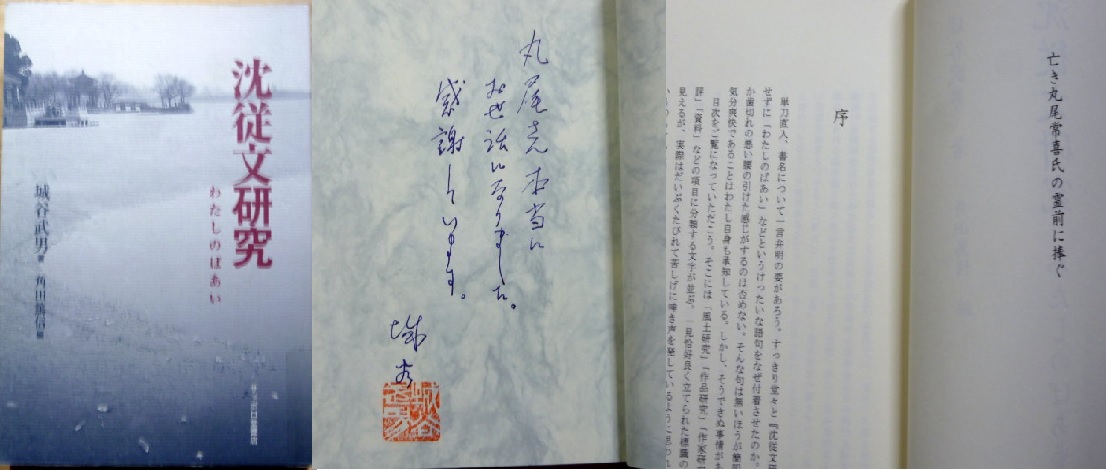 沈従文研究
わたしのばあい
城谷武男 著
角田篤信 編
丸尾兄 本当に
お世話になりました。
感謝しています。
城谷
城谷武男
亡き丸尾常喜氏の霊前に捧ぐ
序
単刀直入、書名について一言弁明の要があろう。すっきり堂々と『沈従文研
せずに「わたしのばあい」などというけったいな語句をなぜ付着させたのか。
か歯切れの悪い腰の引けた感じがするのは否めない。そんな句は無いほうが簡明
気分爽快であることはわたし自身も承知している。しかし、そうできぬ事情があ
目次をご覧になっていただこう。そこには「風土研究」「作品研究」「作家研
評」「資料」などの項目に分類する文字が並ぶ。一見恰好良く立てられた標識の
見えるが、実際はだいぶくたびれて苦しげに呻き声を発しているように思われ